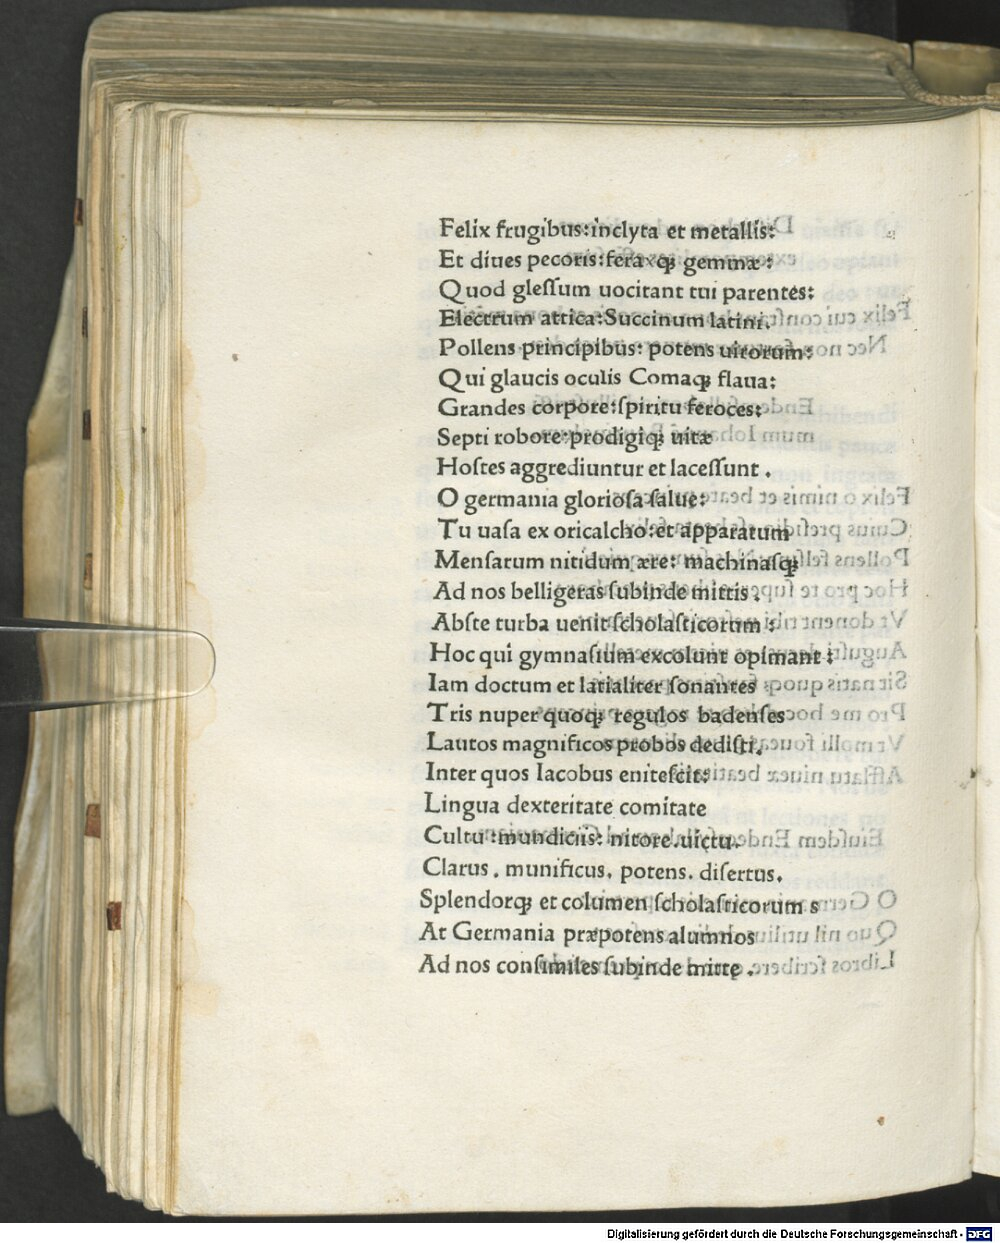 Felix frugibus: inclyta et metallis:
Et diues pecoris: feraxqꝫ gemmæ:
Quod gleſſum uocitant tui parentes:
Electrum attica: Succinum latini.
Pollens principibus: potens uirorum:
Qui glaucis oculis Comaqꝫ flaua:
Grandes corpore: ſpiritu feroces:
Septi robore: prodigiqꝫ uitæ
Hoſtes aggrediuntur et laceſſunt.
O germania glorioſa ſalue:
Tu uaſa ex oricalcho: et apparatum
Menſarum nitidum ære: machinaſqꝫ
Ad nos belligeras ſubinde mittis.
Abſte turba uenit ſcholaſticorum:
Hoc qui gymnaſium excolunt opimant:
Iam doctum et latialiter ſonantes
Tris nuper quoqꝫ regulos badenſes
Lautos magnificos probos dediſti.
Inter quos Iacobus eniteſcit:
Lingua dexteritate comitate
Cultu: mundiciis: nitore. uictu.
Clarus. munificus. potens. diſertus.
Splendorqꝫ et columen ſcholaſticorum s
At Germania præpotens alumnos
Ad nos conſimiles ſubinde mitte.
Digitalisierung gefördert durch die Deutsche Forschungsgemeinschaft - DFG